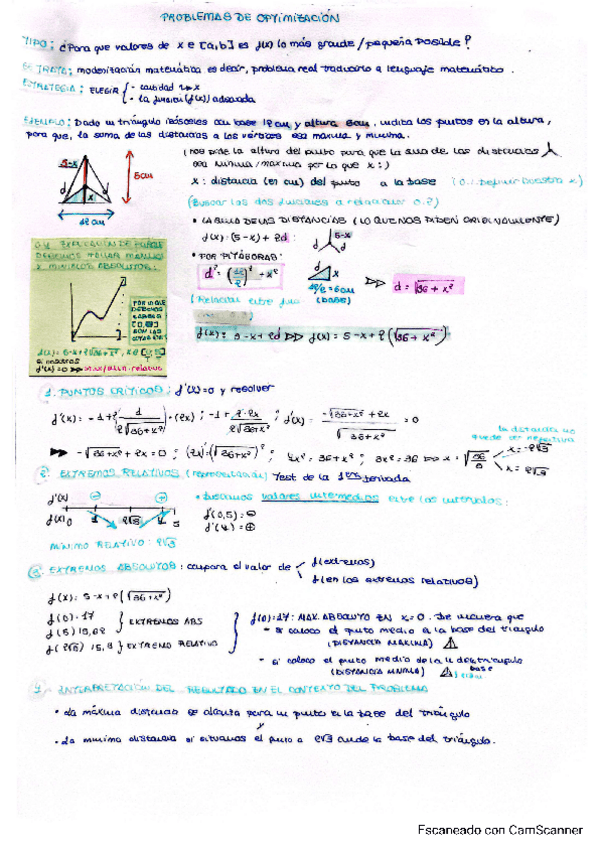 PROBLEMAS DE OPTIMIZACIÓN
TIPO: ¿Para que valores de x ∈ [a,b] es f(x) lo más grande / pequeña posible?
SE TRATA: modernización matemática es decir, problema real traducirlo a lenguaje matemático.
ESTRATEGIA: ELEGIR - cantidad x
- la función (f(x)) adecuada
EJEMPLO: Dado un triángulo isósceles con base 12 cm y altura 5cm, indica los puntos en la altura,
para que, la suma de las distancias a los vértices sea máxima y mínima.
(nos pide la altura del punto para que la suma de las distancias
sea mínima / máxima por lo que x:)
5-x
5cm
d d
x
12 cm
x: distancia (en cm) del punto a la base
(Buscar las dos funciones a relacionar
• LA SUMA DE LAS DISTANCIAS (LO QUE NOS PIDEN ORIGINALMENTE)
f(x): (5-x) + 2d :
5-x
d d
• POR PITÁGORAS:
d²: (12/2)² + x²
d
x
12/2 = 6cm
(BASE)
d = √36 + x²
(Relación entre
f(x): 5-x+2d 5-x+2(√36+x²)
DEBEMOS HALLAR MÁXIMOS
Y MÍNIMOS ABSOLUTOS:
POR LO QUE
DEBEMOS
f(x): 5-x+2√36+x², x∈[0,5]
f'(x)=0 max/min. relativo
1. PUNTOS CRÍTICOS: f'(x)=0 y resolver
f'(x) = -1+2(1/2√36+x²)·(2x); -1+ 2·2x/2√36+x²; f'(x) = -√36+x²+2x/√36+x² = 0
la distancia no
puede ser negativa
-√36+x²+2x = 0; (2x)²=(√36+x²)²; 4x² = 36+x²; 3x²=36 x=√36/3 x=-2√3
x=2√3
2. EXTREMOS RELATIVOS Test de la 1era derivada
f'(x) ⊖ ⊕
f(x) 0 1 2√3 4 5
• buscamos valores intermedios entre los intervalos:
f'(0,5)=⊖
f'(4)=⊕
MÍNIMO RELATIVO: 2√3
3. EXTREMOS ABSOLUTOS: compara el valor de f(extremos)
f(en los extremos relativos)
f(x): 5-x+2(√36+x²)
f(0): 17
f(5) 15,62
EXTREMOS ABS
f(2√3) 15,3 } EXTREMO RELATIVO
f(0):17: MAX. ABSOLUTO EN x=0. De manera que
- si coloco el punto medio a la base del triángulo
(DISTANCIA MÁXIMA)
- si coloco el punto medio de la
(DISTANCIA MÍNIMA)
4. INTERPRETACIÓN DEL RESULTADO EN EL CONTEXTO DEL PROBLEMA
• La máxima distancia se alcanza para un punto en la base del triángulo
y
• La mínima distancia si situamos el punto a 2√3 cm de la base del triángulo.
Escaneado con CamScanner